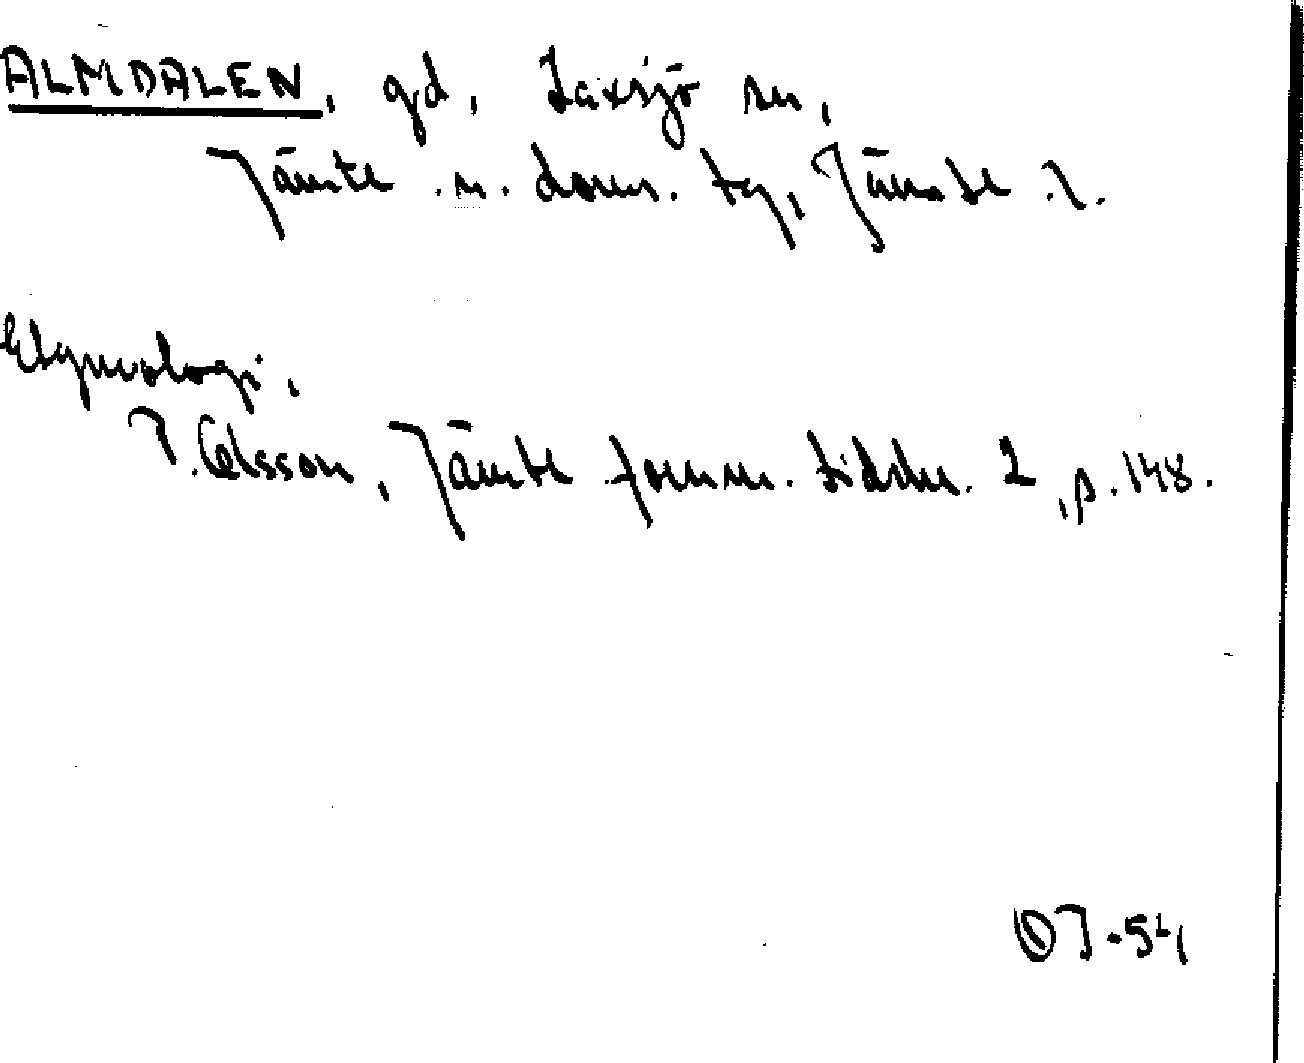 ALMDALEN, gd, Laxsjö sn,
Jämtl. n. doms. tg, Jämtl. l.
Etymologi,
P. Olsson, Jämtl. fornm. tidskr. 2, p. 148.
OJ-54